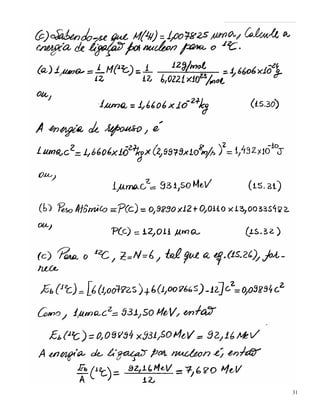 (c) Sabendo-se que M(¹H) = 1,007825 uma, Calcule a
energia de ligação por nucleon para o ¹²C.
(a) 1 uma = 1/12 M(¹²C) = 1/12 12g/mol / 6,0221x10²³/mol = 1,6606x10⁻²⁴g
ou,
1uma = 1,6606x10⁻²⁷kg (15.30)
A energia de repouso, é
1uma.c² = 1,6606x10⁻²⁷kg x (2,9979x10⁸m/s)² = 1,492x10⁻¹⁰J
ou,
1uma.c² = 931,50 MeV (15.31)
(b) Peso Atômico = P(C) = 0,9890x12 + 0,0110x13,00335482
ou,
P(C) = 12,011 uma (15.32)
(c) Para o ¹²C, Z=N=6, tal que a eq.(15.26), for-
nece
E_b(¹²C) = [6(1,007825) + 6(1,008665) - 12]c² = 0,09894c²
Como, 1uma.c² = 931,50 MeV, então
E_b(¹²C) = 0,09894 x 931,50 MeV = 92,16 MeV
A energia de ligação por nucleon é, então
E_b/A (¹²C) = 92,16 MeV / 12 = 7,680 MeV
31